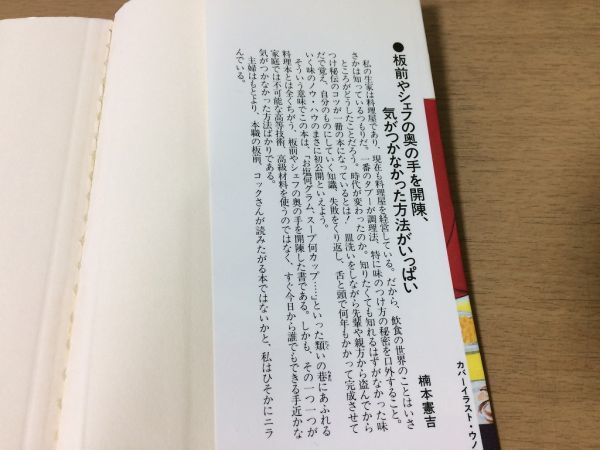 ●板前やシェフの奥の手を開陳、
気がつかなかった方法がいっぱい
楠本憲吉
私の生家は料理屋であり、現在も料理屋を経営している。だから、飲食の世界のことはいさ
さかは知っているつもりだ。一番のタブーが調理法、特に味のつけ方の秘密を口外すること。
ところがどうしたことだろう。時代が変わったのか。知りたくても知れるはずがなかった味
つけ秘伝のコツが一番の本になっているとは！ 皿洗いをしながら先輩や親方から盗んでから
だで覚え、自分のものにしていく知識、失敗をくり返し、舌と頭で何年もかかって完成させて
いく味のノウ・ハウのまさに初公開といえよう。
そういう意味でこの本は、「お塩何グラム、スープ何カップ……」といった類いの巷にあふれる
料理本とは全くちがう、板前やシェフの奥の手を開陳した書である。しかも、その一つ一つが
家庭では不可能な高等技術、高級材料を使うのではなく、すぐ今日から誰でもできる手近かな
気がつかなかった方法ばかりである。
主婦はもとより、本職の板前、コックさんが読みたがる本ではないかと、私はひそかにニラ
んでいる。
カバーイラスト・ウノ